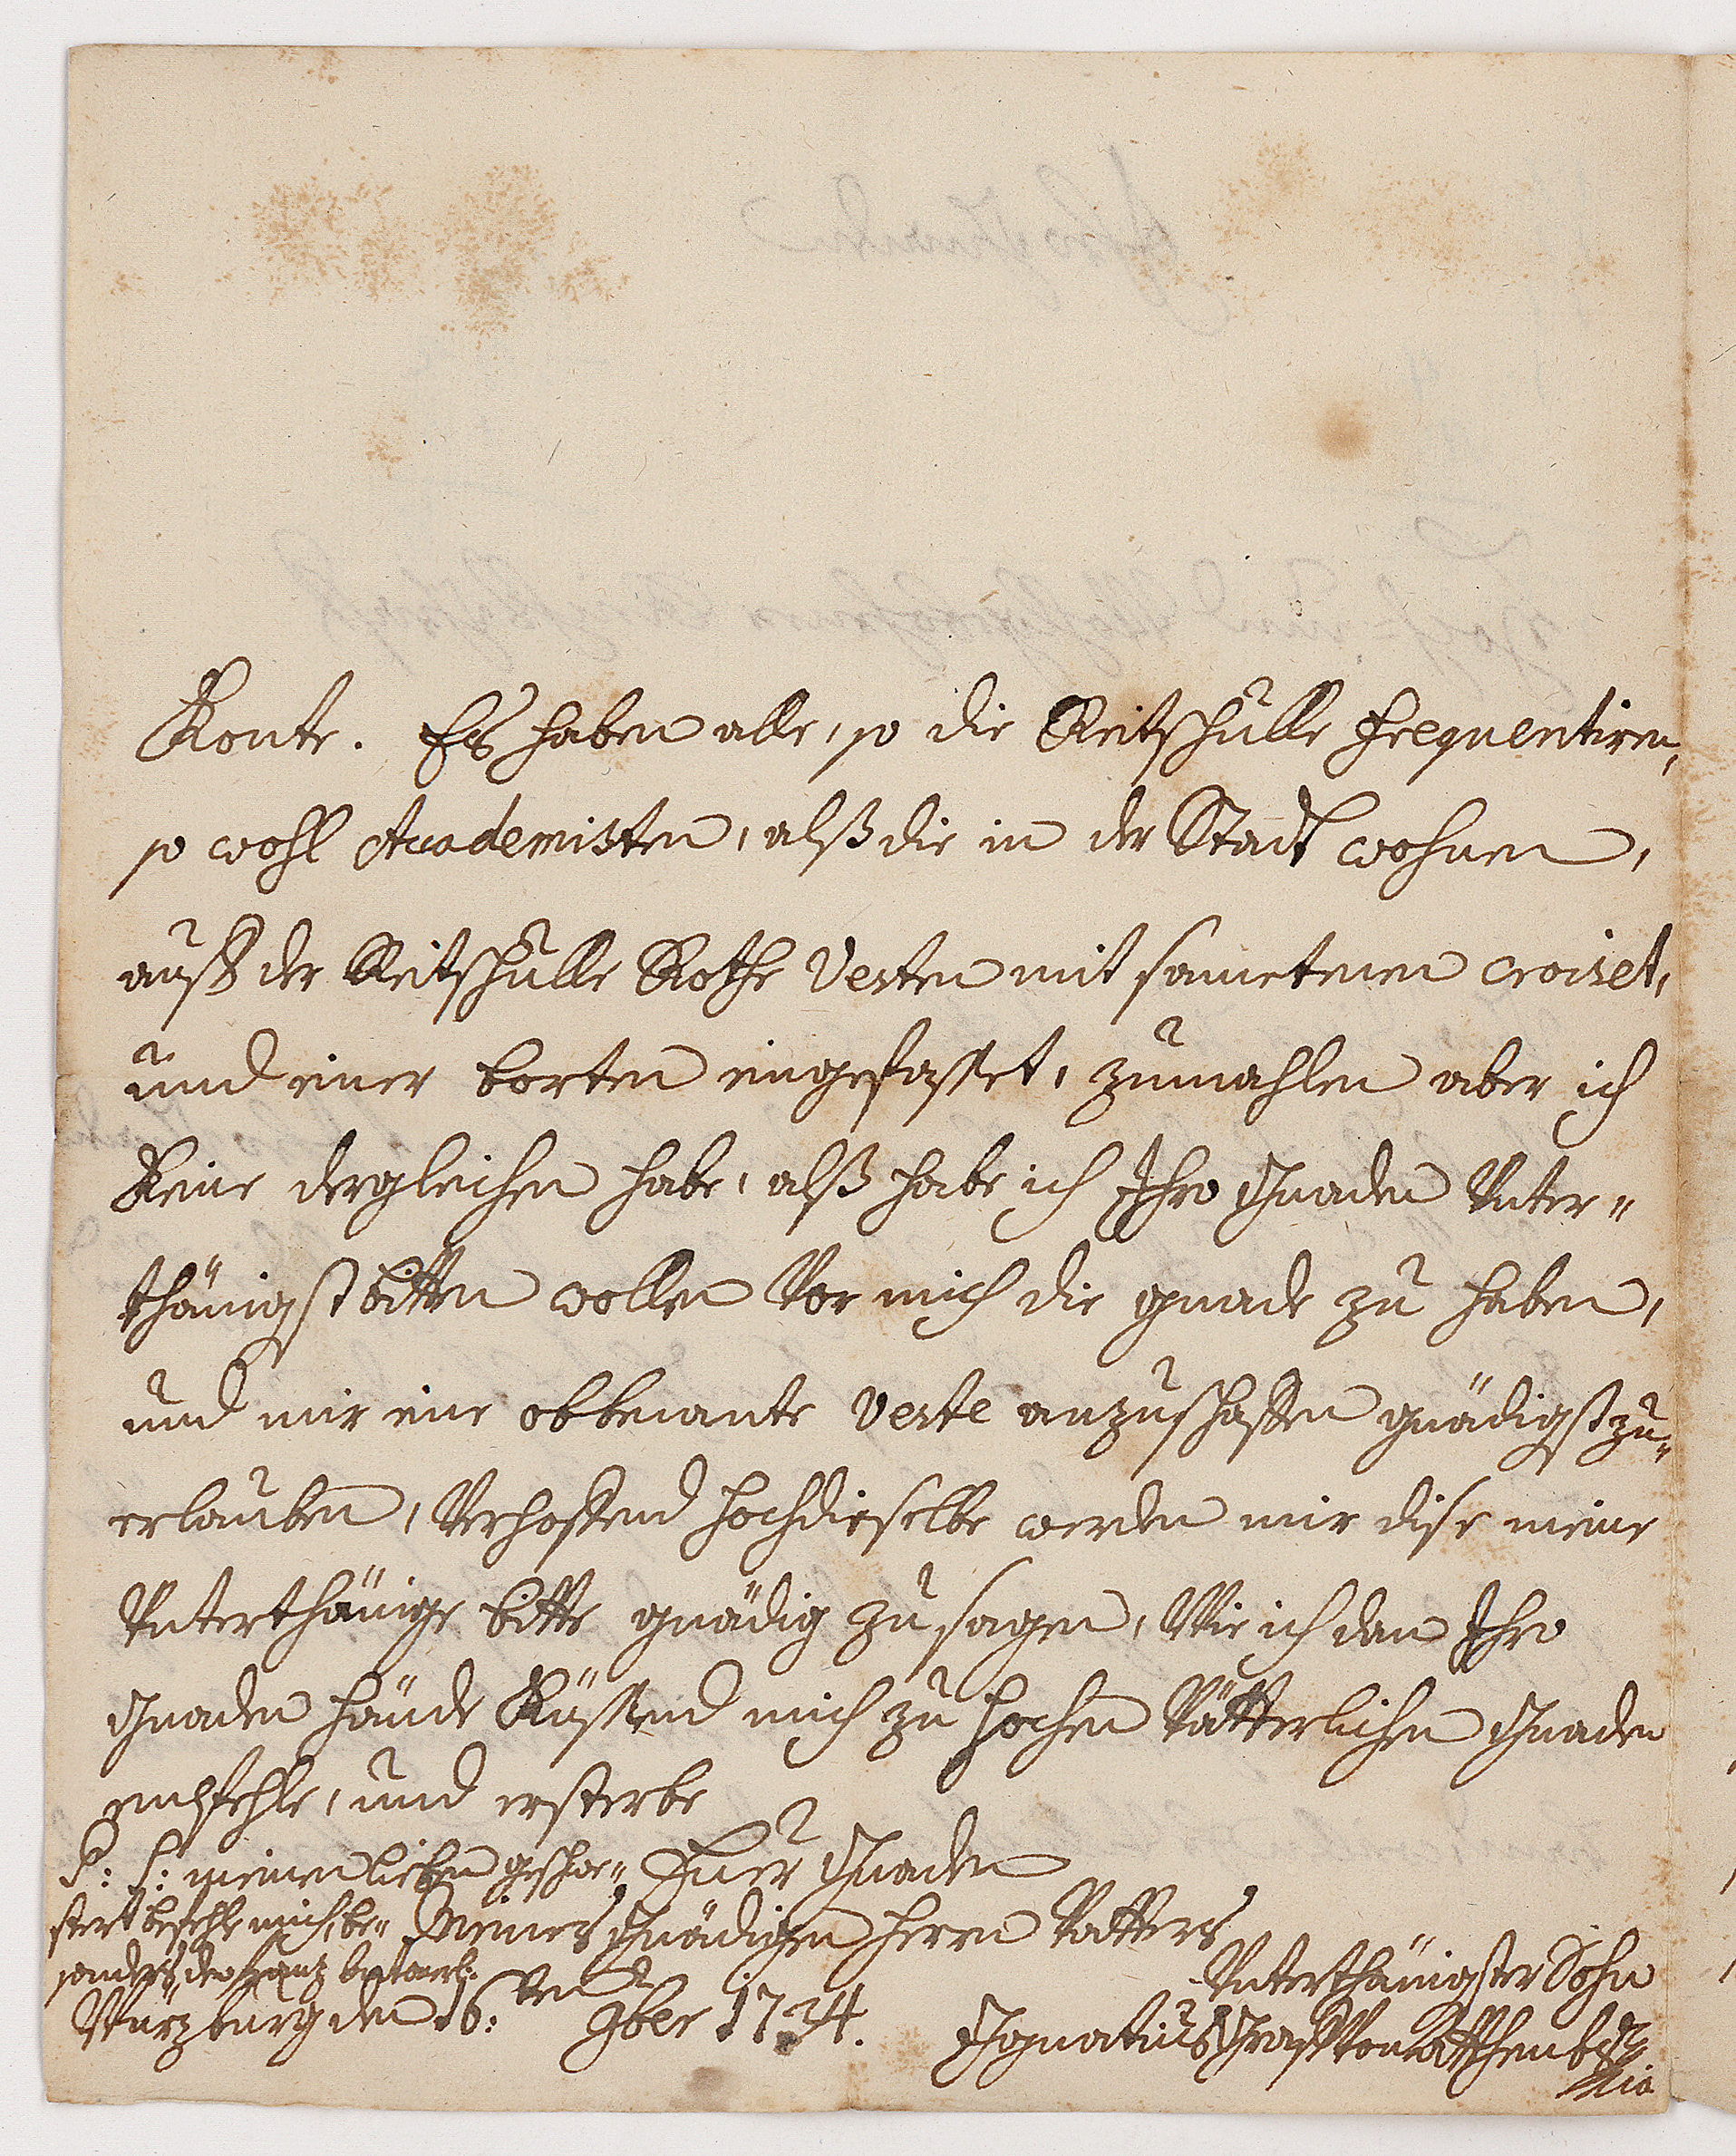 Konte. Es haben alle, so die Reitschulle frequentiren,
so wohl Academisten, alß die in der Stadt wohnen,
auß der Reitschulle Rothe Vesten mit sametenen croiset,
und einer borten eingefasset, zumahlen aber ich
Keine dergleichen habe, alß habe ich Ihro Gnaden Unter„
thänigst bitten wollen Vor mich die gnade zu haben,
und mir eine obbenante Veste anzuschaffen gnädigst zu„
erlauben, Verhoffend hochdieselbe werden mir dise meine
Unterthänige bitte gnädig zu sagen, Wie ich dan Ihro
Gnaden hände Küssend mich zu hochen Vätterlichen Gnaden
empfehle, und ersterbe
P: S: meinen lieben geschw„
stert befehle mich, be„
sonders den Franz
Euer Gnaden
Meines Gnädigen Herrn Vatters
Unterthänigster Sohn
Würzburg den 16:ten 9ber 1734.
Ignatius Graff Von